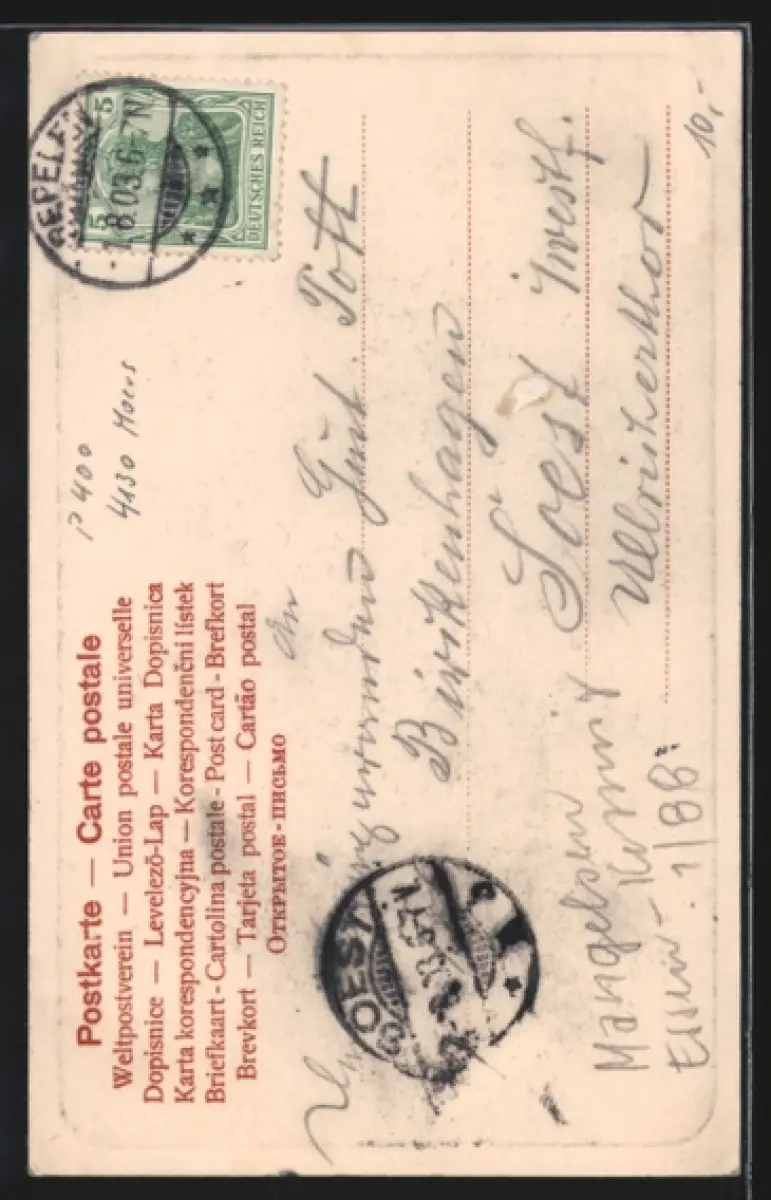 Postkarte — Carte postale
Weltpostverein — Union postale universelle
Dopisnice — Levelező-Lap — Karta Dopisnica
Karta korespondencyjna — Korespondenční lístek
Briefkaart - Cartolina postale - Post card - Brefkort
Brevkort — Tarjeta postal — Cartão postal
Открытое-письмо
P 400
4130 Moers
REPELEN
8.03.6-7N
5
5
DEUTSCHES REICH
An
Gust. Pott
Birkenhagen
Soest i/westf.
Ulbricherthor
SOEST
10,-
Mangelsen
Essen - 1/88